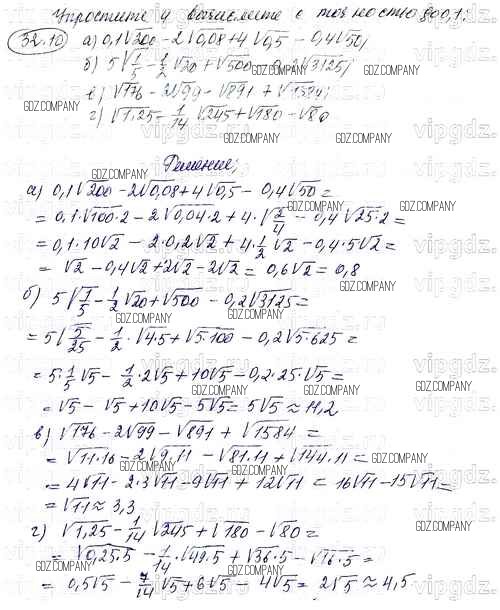 Упростите и вычислите с точностью до 0,1:
32.10 а) 0,1√200 - 2√0,08 + 4√0,5 - 0,4√50;
б) 5√1/5 - 1/2√20 + √500 - 0,2√3125;
в) √176 - 2√99 - √891 + √1584;
г) √1,25 - 1/14 √245 + √180 - √80
Решение:
а) 0,1√200 - 2√0,08 + 4√0,5 - 0,4√50 =
= 0,1·√100·2 - 2√0,04·2 + 4·√2/4 - 0,4√25·2 =
= 0,1·10√2 - 2·0,2√2 + 4·1/2√2 - 0,4·5√2 =
= √2 - 0,4√2 + 2√2 - 2√2 = 0,6√2 = 0,8
б) 5√1/5 - 1/2√20 + √500 - 0,2√3125 =
= 5√5/25 - 1/2·√4·5 + √5·100 - 0,2√5·625 =
= 5·1/5√5 - 1/2·2√5 + 10√5 - 0,2·25·√5 =
= √5 - √5 + 10√5 - 5√5 = 5√5 ≈ 11,2
в) √176 - 2√99 - √891 + √1584 =
= √11·16 - 2√9·11 - √81·11 + √144·11 =
= 4√11 - 2·3√11 - 9√11 + 12√11 = 16√11 - 15√11 =
= √11 ≈ 3,3
г) √1,25 - 1/14√245 + √180 - √80 =
= √0,25·5 - 1/14·√49·5 + √36·5 - √16·5 =
= 0,5√5 - 7/14√5 + 6√5 - 4√5 = 2√5 ≈ 4,5
GDZ.COMPANY
vipgdz.ru